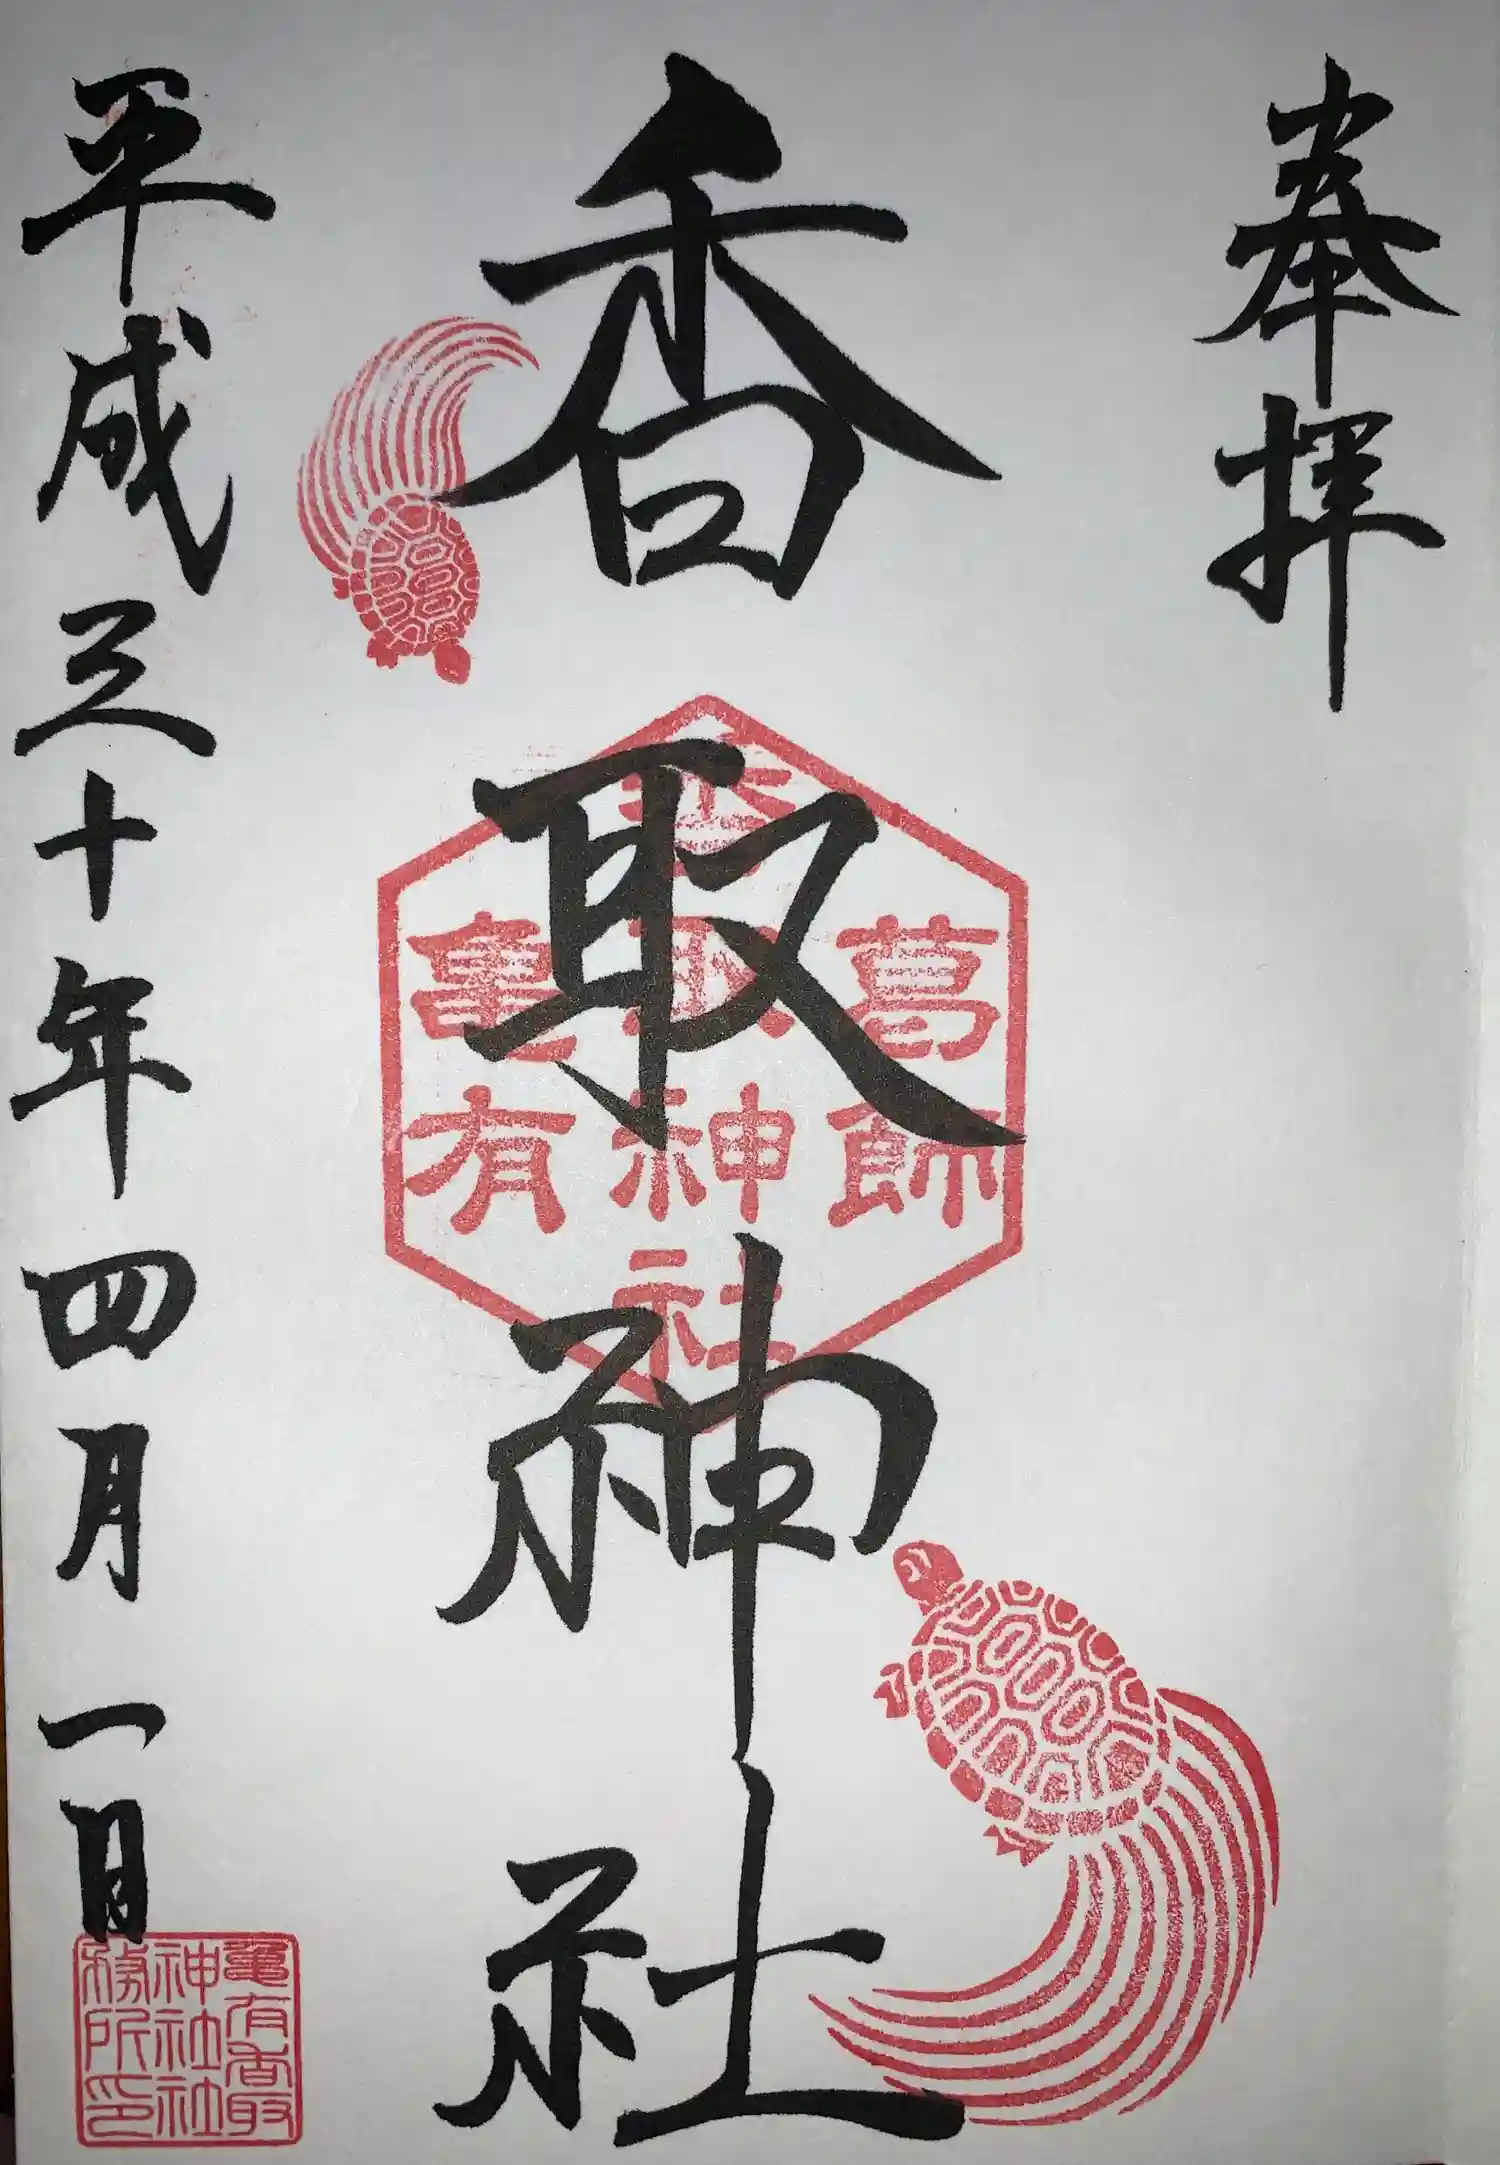 奉拝
香取神社
葛飾
香取神社
亀有
平成三十年四月一日
亀有香取
神社社
務所印